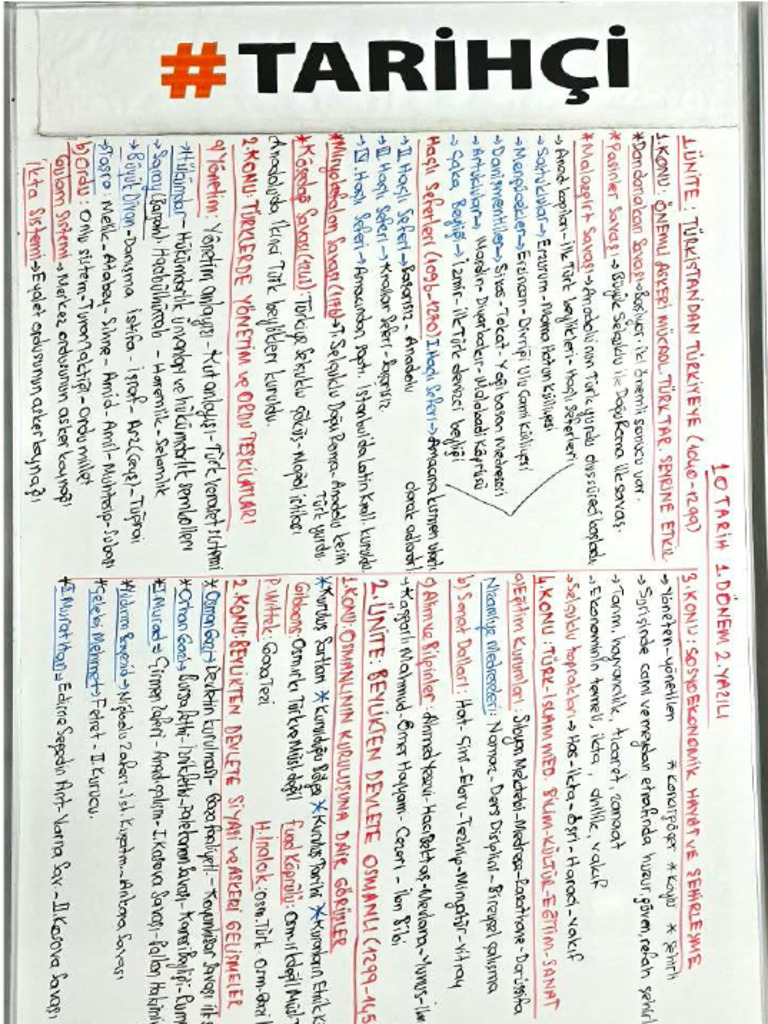 #TARİHÇİ
10 TARİH 1.DÖNEM 2.YAZILI
1.ÜNİTE: TÜRKİSTANDAN TÜRKİYEYE (1040-1299)
1.KONU: ÖNEMLİ ASKERİ MÜCADL. TÜRK TAR. SEYRİNE ETKİL
*Dandanakan Savaşı→ önemli sonucu var.
*Pasinler Savaşı→Büyük Selçuklu ile Doğu Roma ilk savaş.
*Malazgirt Savaşı→Anadolu'nun Türk yurdu oluş süreci başladı
→Anad. kapıları-İlk Türk beylikleri-Haçlı seferleri
→Saltuklular→Erzurum-Mama Hatun Külliyesi
→Mengücekler→Erzincan-Divriği Ulu Camii Külliyesi
→Danişmentliler→Sivas-Tokat-Yağıbasan Medresesi
→Artuklular→Mardin-Diyarbakır-Malabadi Köprüsü
→Çaka Beyliği→İzmir-ilk Türk denizci beyliği
Haçlı Seferleri (1096-1270) I.Haçlı Seferi→Amacına kısmen ulaştı
→II.Haçlı Seferi→Başarısız-Anadolu olarak adlandırıl
→III.Haçlı Seferi→Krallar Seferi-Başarısız
→IV.Haçlı Seferi→Amacından saptı. İstanbul'da Latin Krallı. kuruldu
*Miryokefalon Savaşı (1176)→T.Selçuklu Doğu Roma-Anadolu kesin Türk yurdu.
*Kösedağ Savaşı (1243): Türkiye Selçuklu çöküş-Moğol istilası
Anadoluda ikinci Türk beylikleri kuruldu.
2.KONU: TÜRKLERDE YÖNETİM ve ORDU TEŞKİLATLARI
a)Yönetim: Yönetim anlayışı-Kut anlayışı-Türk veraset sistemi
→Hükümdar→Hükümdarlık ünvanları ve hükümdarlık sembolleri
→Saray-Haremlik-Selamlık
→Büyük Divan-Danışma İstifa-İşraf-Arz(Ceyş)-Tuğrai
→Taşra: Melik-Atabey-Şıhne-Amid-Amil-Muhtesip-Subaşı
b)Ordu: Onlu sistem-Turan taktiği-Ordu millet
Gulam Sistemi→Merkez ordusunun asker kaynağı
İkta Sistemi→Eyalet ordusunun asker kaynağı
3.KONU: SOSYOEKONOMİK HAYAT VE ŞEHİRLEŞME
→Yöneten-yönetilen *Konargöçer *Köylü *Şehirli
→Şehirde cami ve meydan etrafında huzur, güven, refah
→Tarım, hayvancılık, ticaret, zanaat
→Ekonominin temeli, ikta, ahilik, vakıf
→Selçuklu toprakları→Has-ikta-öşri-Haraci-vakıf
4.KONU: TÜRK-İSLAM MED. BİLİM-KÜLTÜR-EĞİTİM-SANAT
a)Eğitim Kurumları: Sıbyan Mektebi-Medrese-Rasathane-Darüşşifa
Nizamiye Medreseleri: Ders Disiplini-Bireysel çalışma
b)Sanat Dalları: Hat-Çini-Ebru-Tezhip-Minyatür-Vitray
c)Alim ve Bilginler: Ahmed Yesevi-Hacı Bektaş-Mevlana-Yunus
→Kaşgarlı Mahmud-Ömer Hayyam-Cezeri-İbn Bibi
2.ÜNİTE: BEYLİKTEN DEVLETE OSMANLI (1299-145
1.KONU: OSMANLININ KURULUŞUNA DAİR GÖRÜŞLER
*Kuruluş Şartları *Kurulduğu Bölge *Kuruluş Tarihi *Kuranların Etnik K
Gibbons: Osm. ırkı Türk ve Müsl. değil Fuad Köprülü:
P.Wittek: Gaza Tezi H.İnalcık: Osm. Türk.
2.KONU: BEYLİKTEN DEVLETE SİYASİ ve ASKERİ GELİŞMELER
*Osman Gazi: Devletin kurulması-Gaza faaliyeti-Koyunhisar Savaşı ilk s
*Orhan Gazi→Bursa Fethi-İznik Fethi-Palekanon Savaşı-Karesi Beyliği-Rume
*I.Murad→Çirmen Zaferi-I.Kosova Savaşı
*Yıldırım Bayezid→Niğbolu Zaferi-İst. Kuşatm.-Ankara Savaşı
*Çelebi Mehmet→Fetret-II.Kurucu.
*II.Murat Han→Edirne Segedin Ant-Varna Sav.-II.Kosova Savaşı